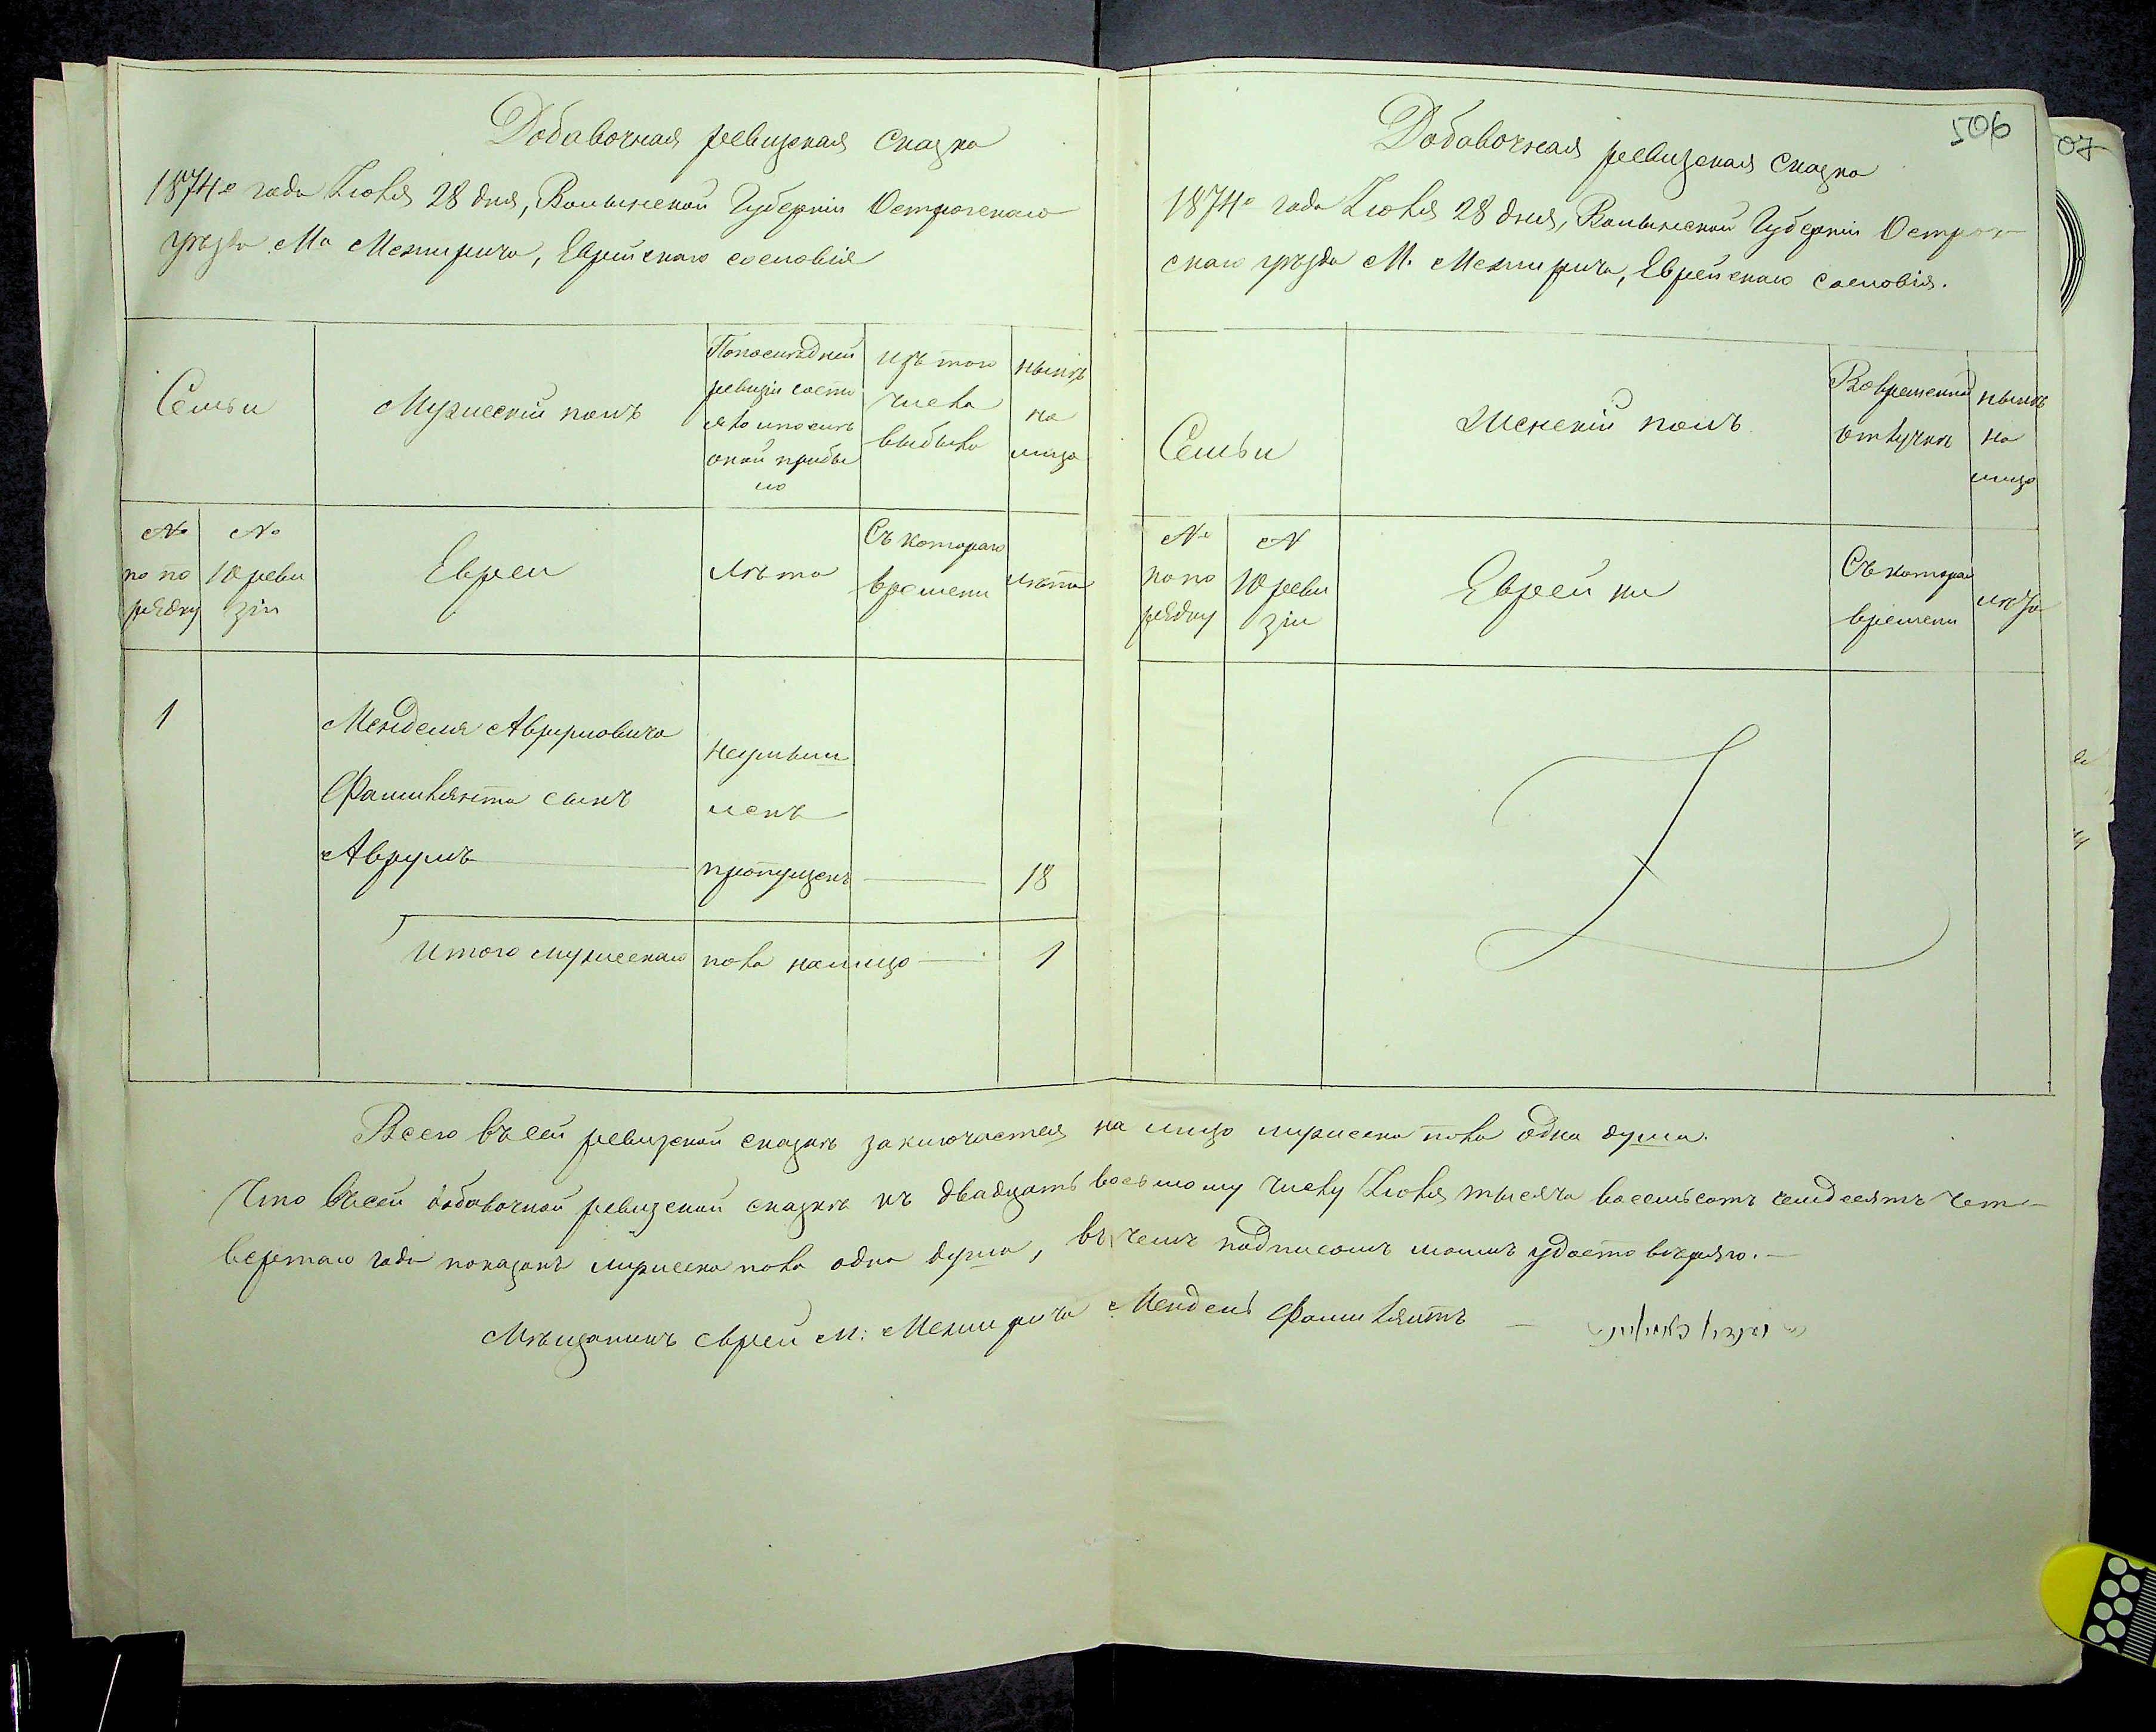 Добавочная ревизская сказка
1874о года Іюля 28 дня, Волынской Губерніи Острогскаго
уѣзда Ма Межирича, Еврейскаго сословія
Семьи
Мужескій полъ
Попоследней
ревизіи состо
яло ипослѣ
оной прибы
ло
изъ того
числа
выбыло
нынѣ
на
лицо
№
по по
рядку
№
10 реви
зіи
Евреи
Лѣта
Съ котораго
времени
лѣта
1
Менделя Аврумовича
Фамилянта сынъ
Аврумъ
неумыш
ленъ
пропущенъ
18
Итого мужескаго пола налицо 1
506
07
Добавочная ревизская сказка
1874о года Іюля 28 дня, Волынской Губерніи Острог-
скаго уѣзда М. Межирича, Еврейскаго сословія.
Семьи
Женскій полъ
Вовременной
отлучкѣ
нынѣ
на
лицо
№
попо
рядку
N
10 реви
зіи
Еврейки
Съ котораго
времени
лѣта
Всего въ сей ревизской сказкѣ заключается на лицо мужеска пола одна душа.
Что въсей добавочной ревизской сказкѣ къ двадцать восьмому числу Іюля тысяча восемьсотъ семдесятъ чет-
вертаго года показанъ мужеска пола одна душа, въ чемъ подписомъ моимъ удостовѣряю.—
Мѣщанинъ еврей м: Межирича Мендель Фамилянтъ —